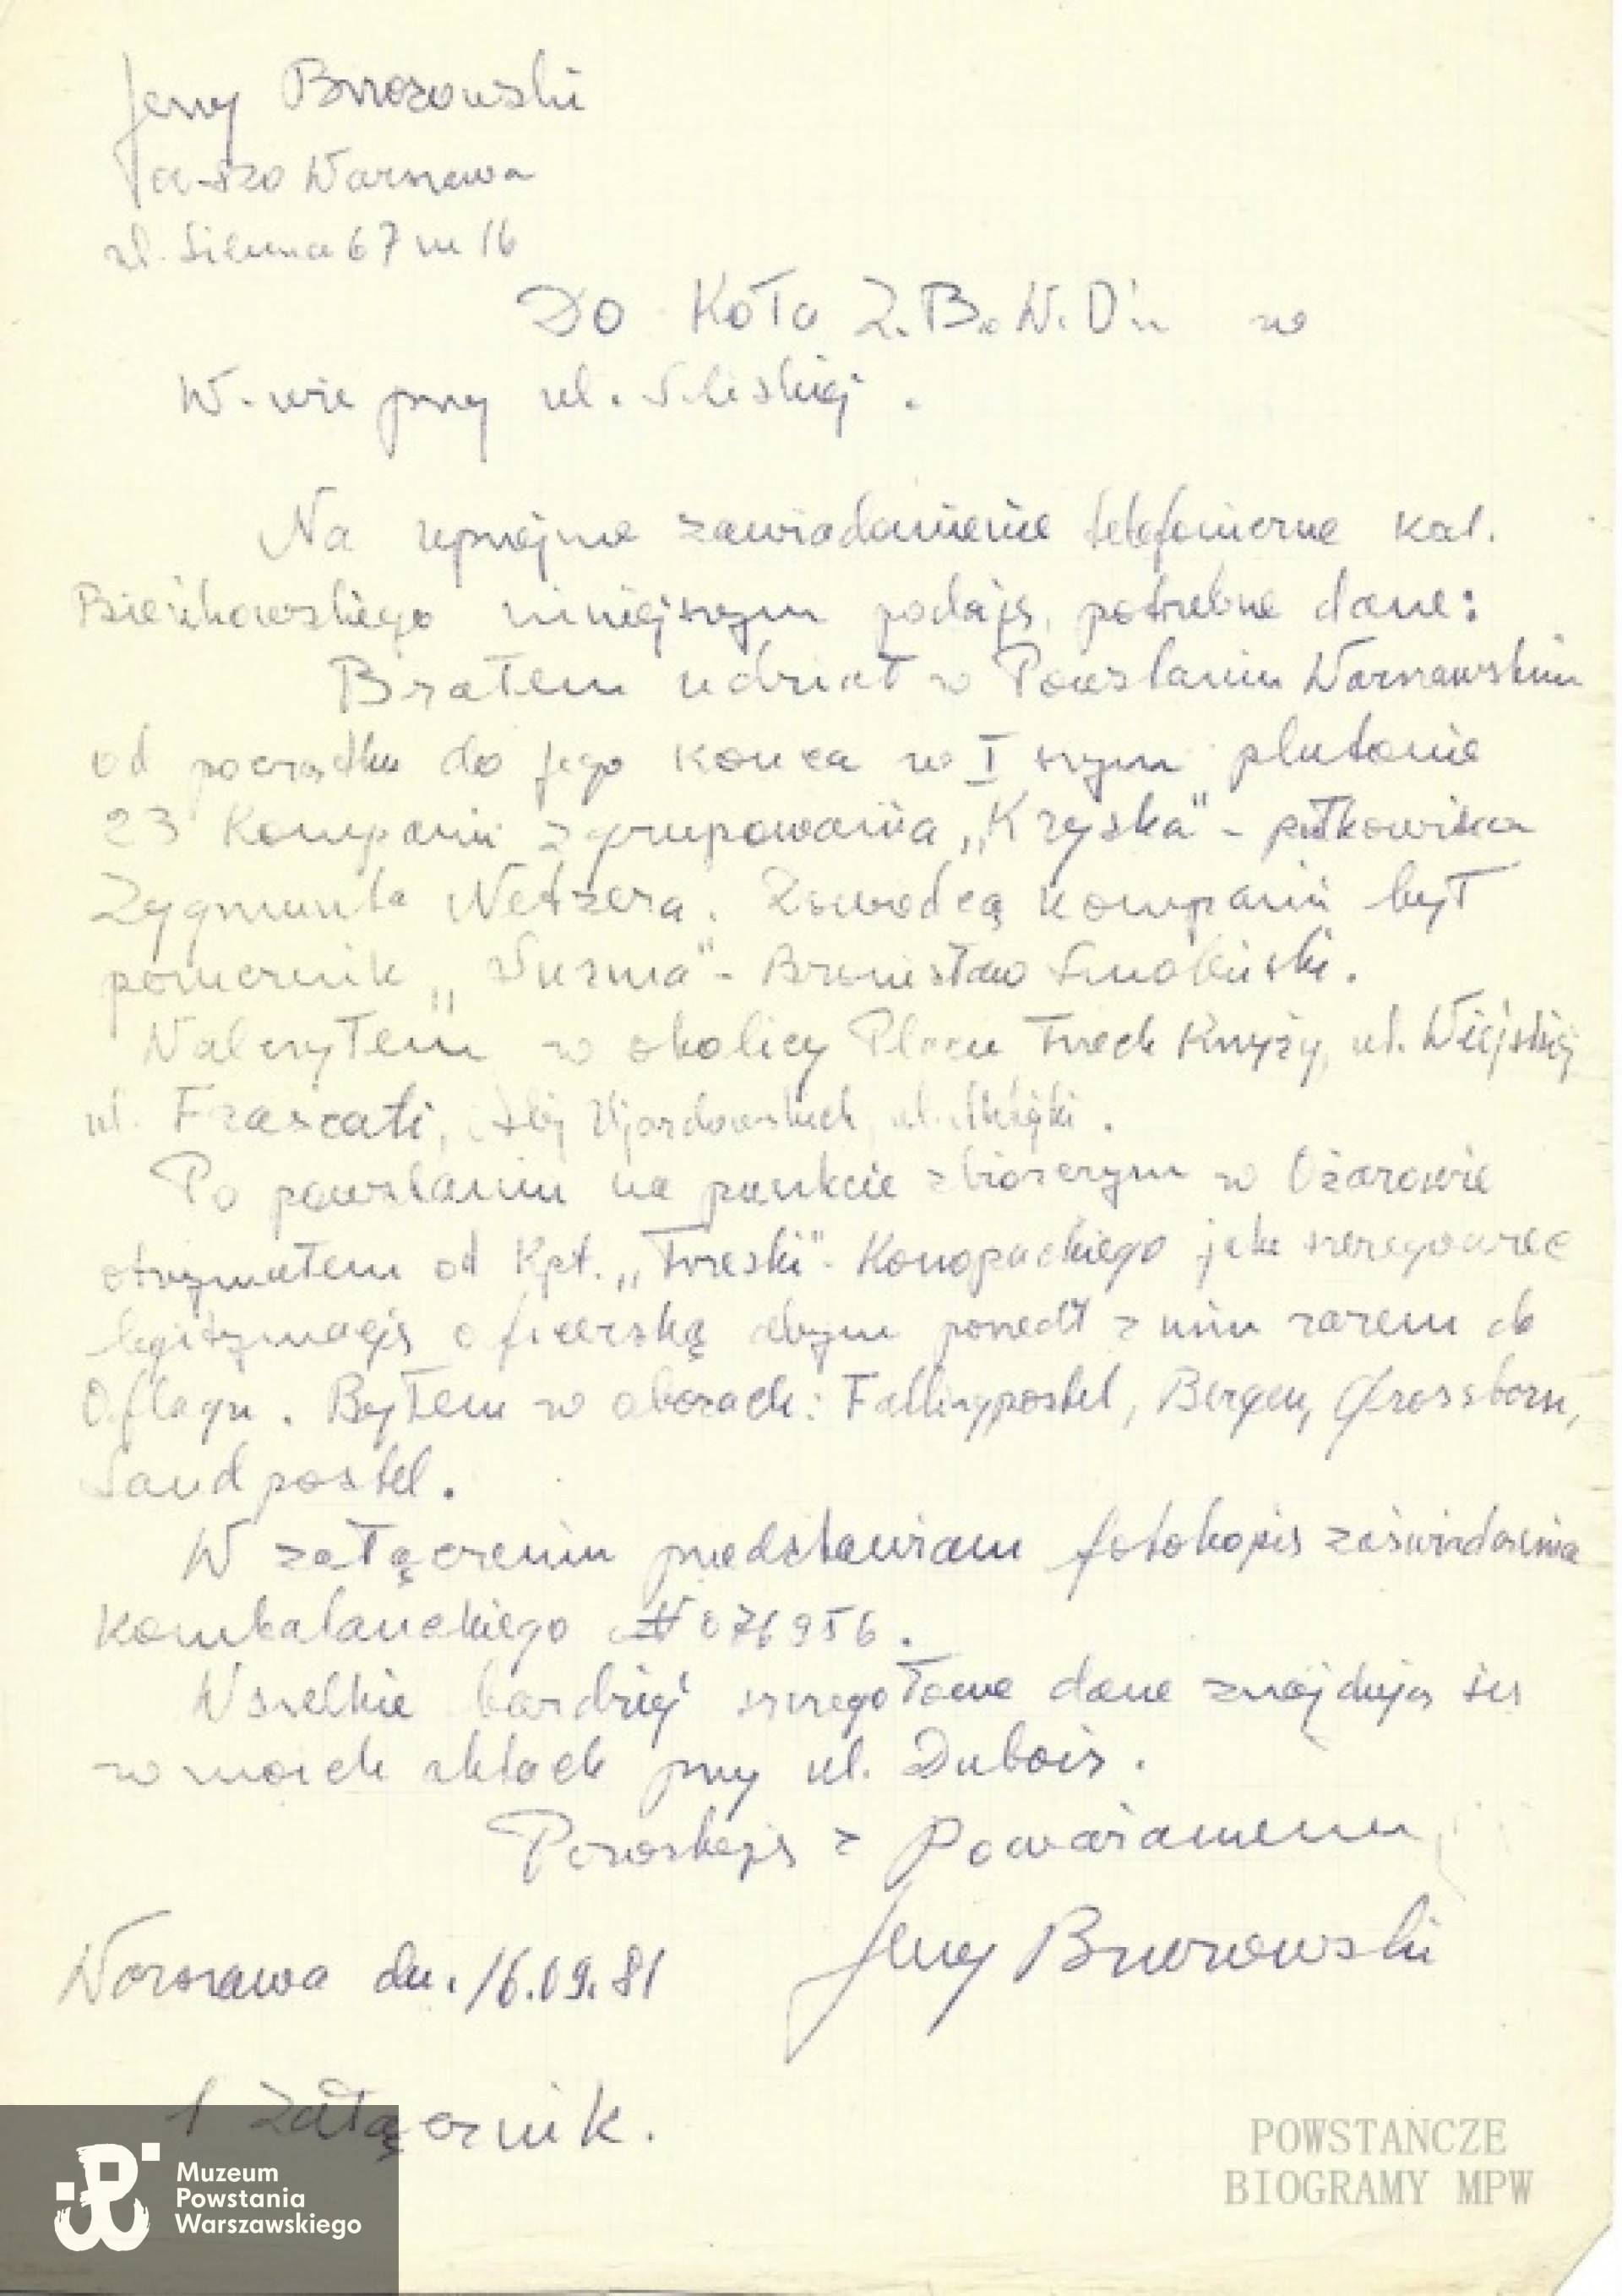 Jerzy Brrozowski
00-820 Warszawa
ul. Sienna 67 m 16
Do Koła Z.B.W.D'u w
W-wie przy ul. Śliskiej.
Na uprzejme zawiadomienie telefoniczne kol.
Bieńkowskiego niniejszym podaję potrzebne dane:
Brałem udział w Powstaniu Warszawskim
od początku do jego końca w I szym plutonie
23 Kompanii zgrupowania „Kryska" - pułkownika
Zygmunta Netzera. Dowódcą kompanii był
porucznik „Surma" - Bronisław
Walczyłem w okolicy Placu Trzech Krzyży, ul. Wiejskiej
ul. Frascati, Alej Ujazdowskich, ul.
Po powstaniu na punkcie zbiorczym w Ożarowie
otrzymałem od Kpt. „Trzeski" - Konopackiego jako szeregowiec
legitymację oficerską abym poszedł z nim razem do
Oflagu. Byłem w obozach: Fallingpostel, Bergen, Grossborn,
Sandpostel.
W załączeniu przedstawiam fotokopię zaświadczenia
Kombatanckiego № 076956.
Wszelkie bardziej szczegółowe dane znajdują się
w moich aktach przy ul. Dubois.
Pozostaję z Poważaniem
Jerzy Brzozowski
Warszawa dn. 16.09.81
1 Załącznik.
Muzeum
Powstania
Warszawskiego
POWSTANCZE
BIOGRAMY MPW